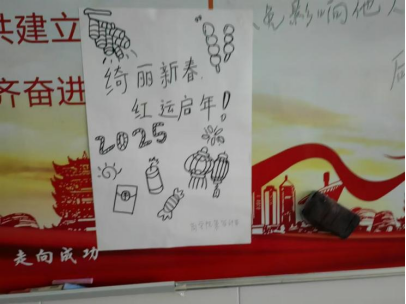 共建立
齐奋进
绮丽新春
红运启年!
2025
免影响他人
走向成功